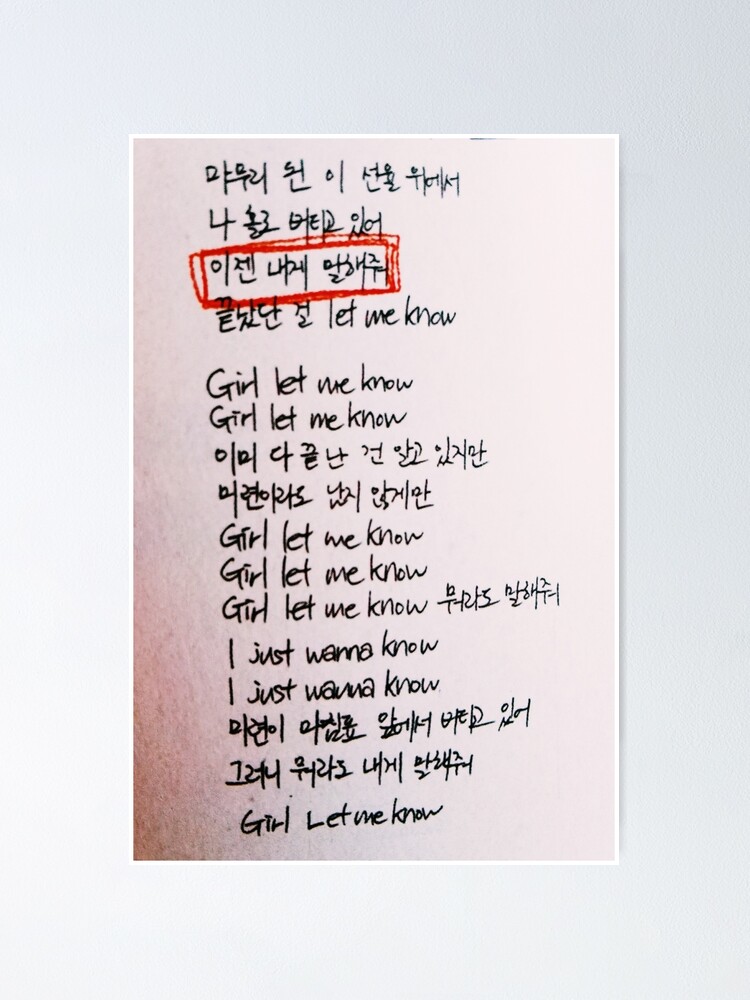 마무리 된 이 선율 위에서
나 홀로 버티고 있어
이젠 내게 말해줘
끝났단 걸 let me know
Girl let me know
Girl let me know
이미 다 끝난 건 알고 있지만
미련이라도 남지 않게만
Girl let me know
Girl let me know
Girl let me know 뭐라도 말해줘
I just wanna know
I just wanna know
미련이 마침표 앞에서 버티고 있어
그러니 뭐라도 내게 말해줘
Girl Let me know